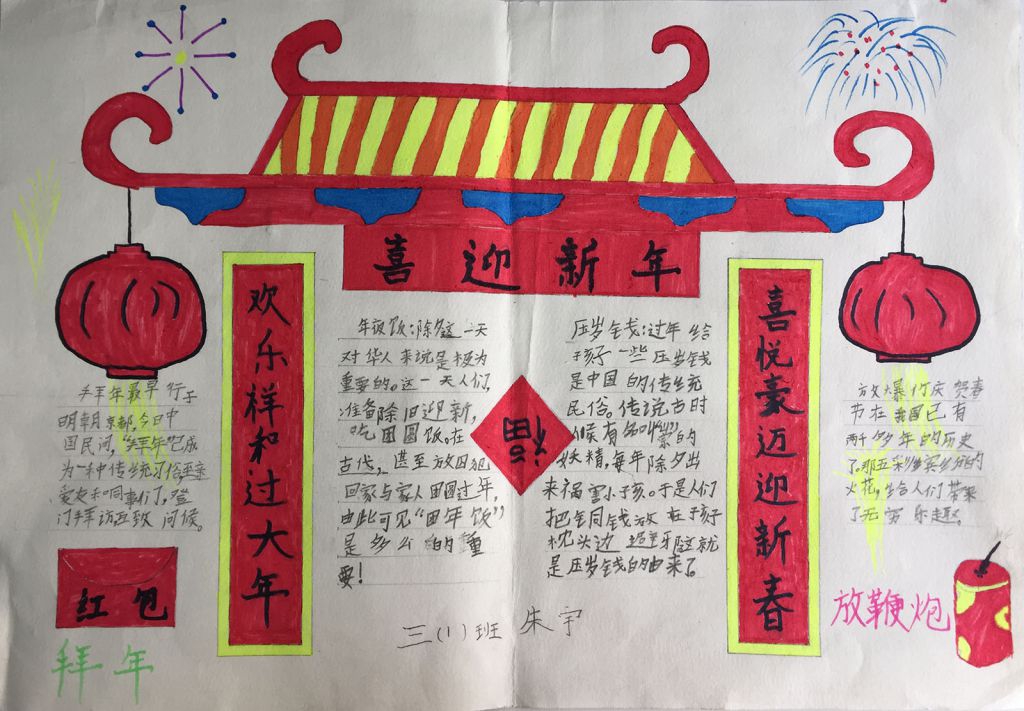 喜迎新年
欢乐祥和过大年
喜悦豪迈迎新春
年夜饭:除夕这一天
对华人来说是极为
重要的。这一天人们
准备除旧迎新,
吃团圆饭。在
古代,甚至放囚犯
回家与家人团圆过年,
由此可见“团年饭”
是多么的重
要!
压岁钱:过年给
孩子一些压岁钱
是中国的传统
民俗。传说古时
候有
妖精,每年除夕出
来祸害小孩。于是人们
把铜钱放在孩子
枕头边避邪这就
是压岁钱的由来了
福
拜年最早行于
明朝京都,今日中
国民间,“拜年”已成
为一种传统习俗
爱友和同事们,登
门拜访互致问候。
红包
拜年
放爆竹庆贺春
节在我国已有
两千多年的历史
了。那五彩缤纷的
火花,给人们带来
了无穷乐趣。
放鞭炮
三(1)班 朱宇